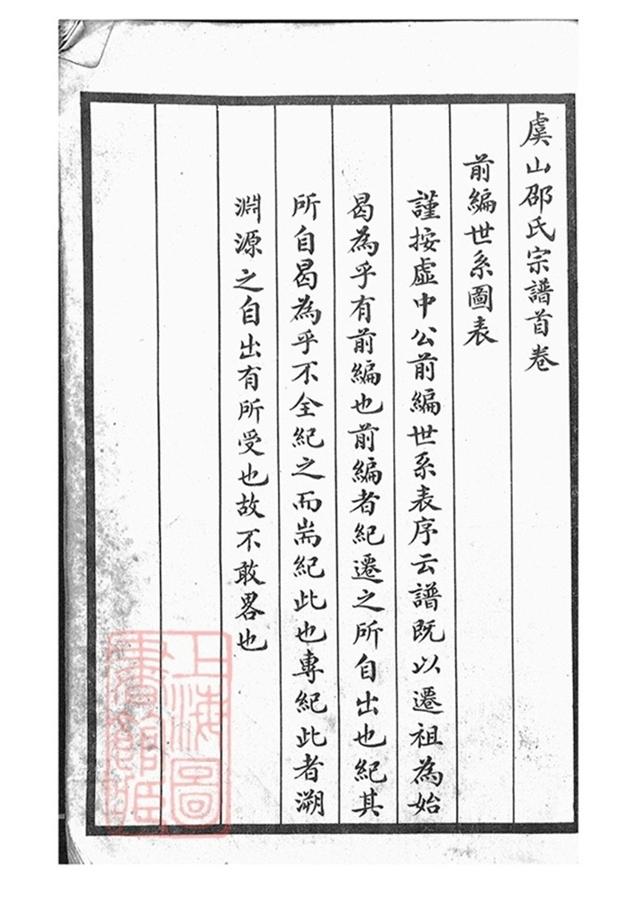 虞山邵氏宗譜首卷
前編世系圖表
謹按虛中公前編世系表序云譜既以遷祖為始
曷為乎有前編也前編者紀遷之所自出也紀其
所自曷為乎不全紀之而耑紀此也專紀此者溯
淵源之自出有所受也故不敢畧也
上海圖
書館藏